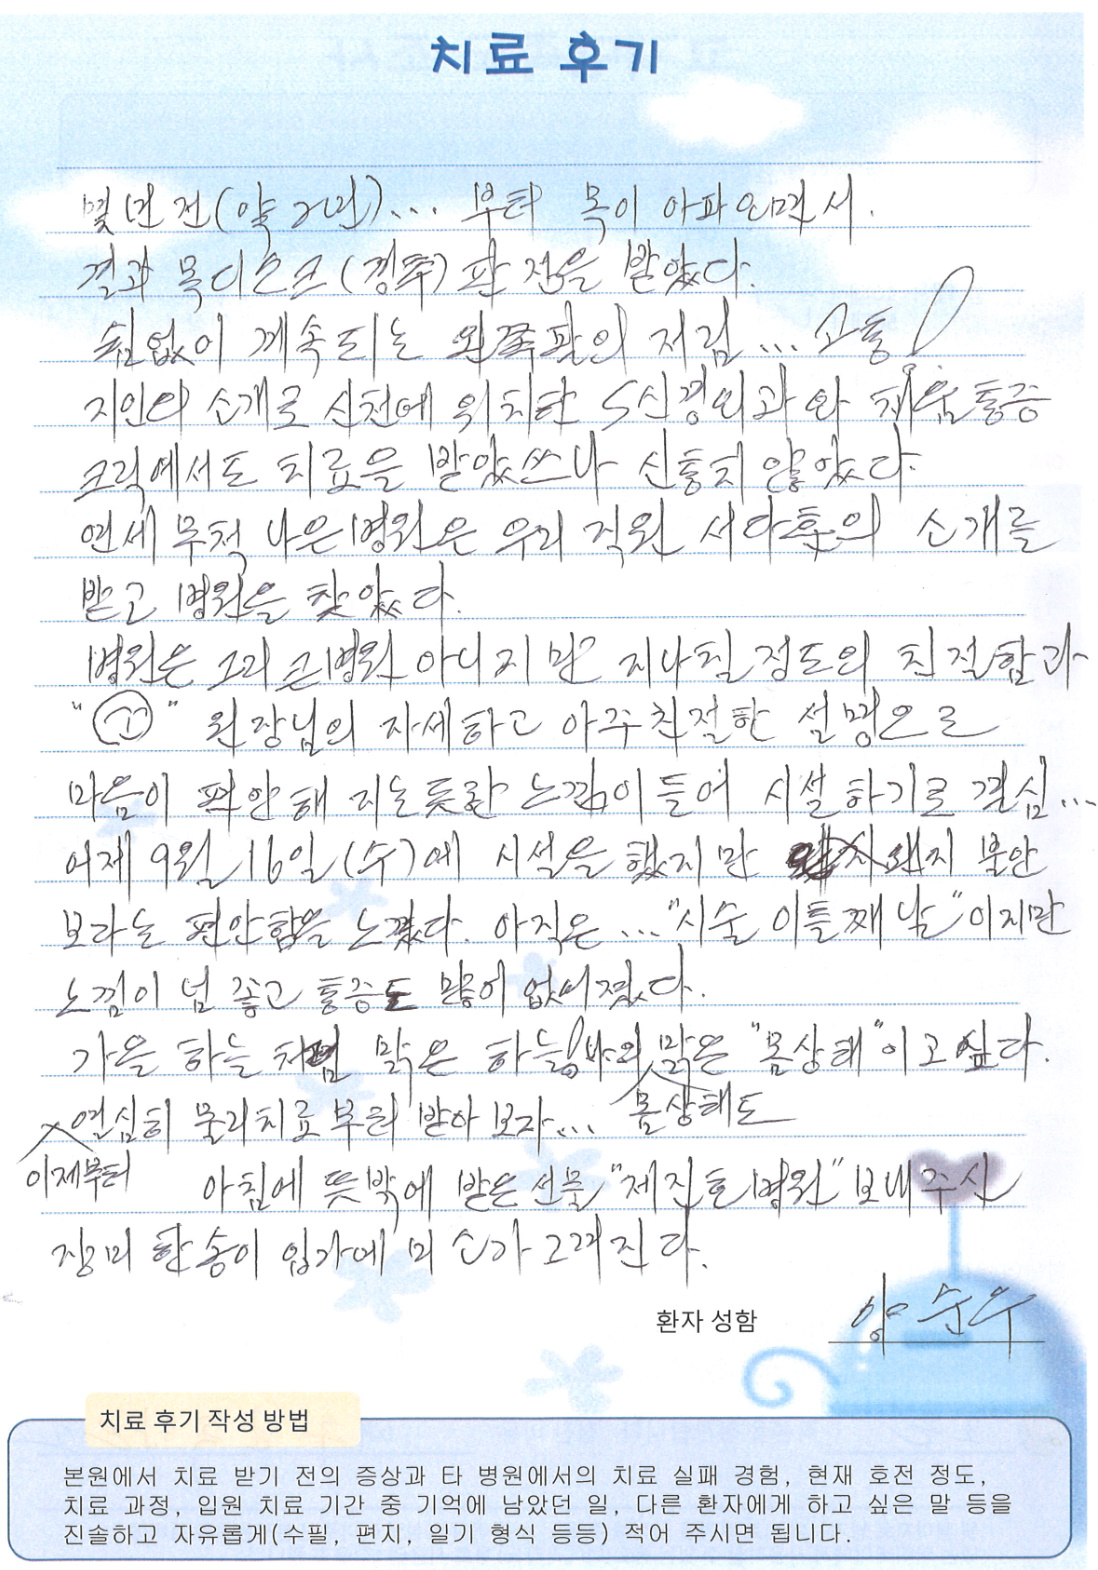 치료 후기
몇년전(약 2년)... 부터 목이 아파오면서.
결과 목디스크(경추) 판정을 받았다.
쉼없이 계속되는 왼쪽팔의 저림... 고통!
지인의 소개로 신천에 위치한 S신경외과와 채움통증
크릭에서도 치료을 받았쓰나 신통치 않았다.
연세무척나은병원은 우리 직원 서다훈의 소개를
받고 병원을 찾았다.
병원은 그리 큰병원 아니지만 지나칠정도의 친절함과
"고" 원장님의 자세하고 아주친절한 설명으로
마음이 편안해 지는듯한 느낌이들어 시설하기로 결심...
어제 9월 16일(수)에 시설을 했지만 왠지 불안
보라는 편안함을 느꼈다. 아직은... "시술 이틀째 날"이지만
느낌이 넘 좋고 통증도 많이 없어졌다.
가을 하늘 처럼 맑은 하늘 맑은 "몸상태"이고싶다.
몸상태도
열심히 물리치료부터 받아보자...
이제부터
아침에 뜻밖에 받은선물 "제진호병원" 보내주신
장미 한송이 입가에 미소가 그려진다.
환자 성함 양순우
치료 후기 작성 방법
본원에서 치료 받기 전의 증상과 타 병원에서의 치료 실패 경험, 현재 호전 정도,
치료 과정, 입원 치료 기간 중 기억에 남았던 일, 다른 환자에게 하고 싶은 말 등을
진솔하고 자유롭게(수필, 편지, 일기 형식 등등) 적어 주시면 됩니다.